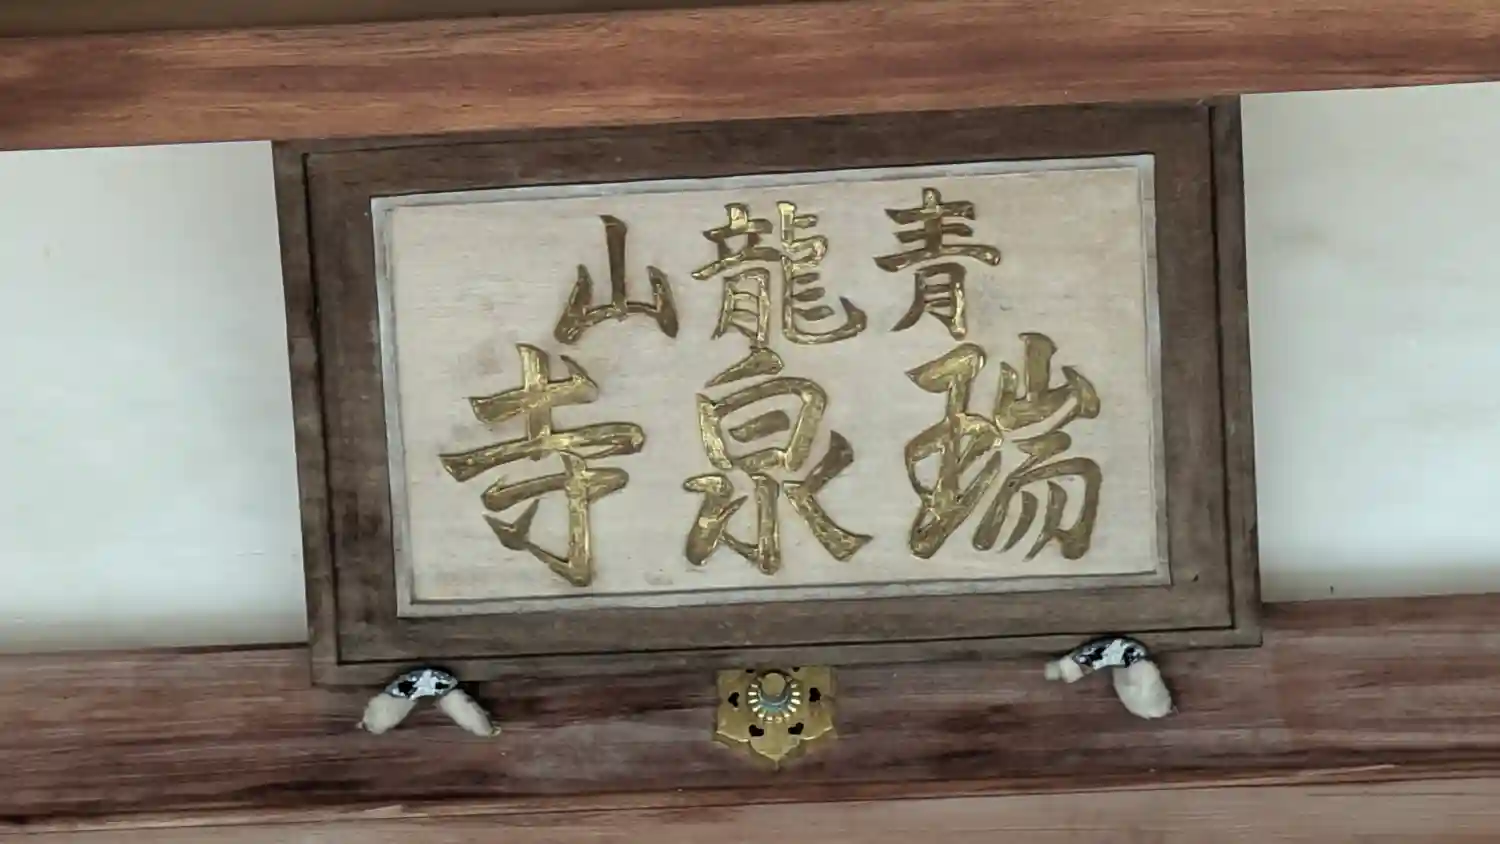 青龍山
瑞泉寺